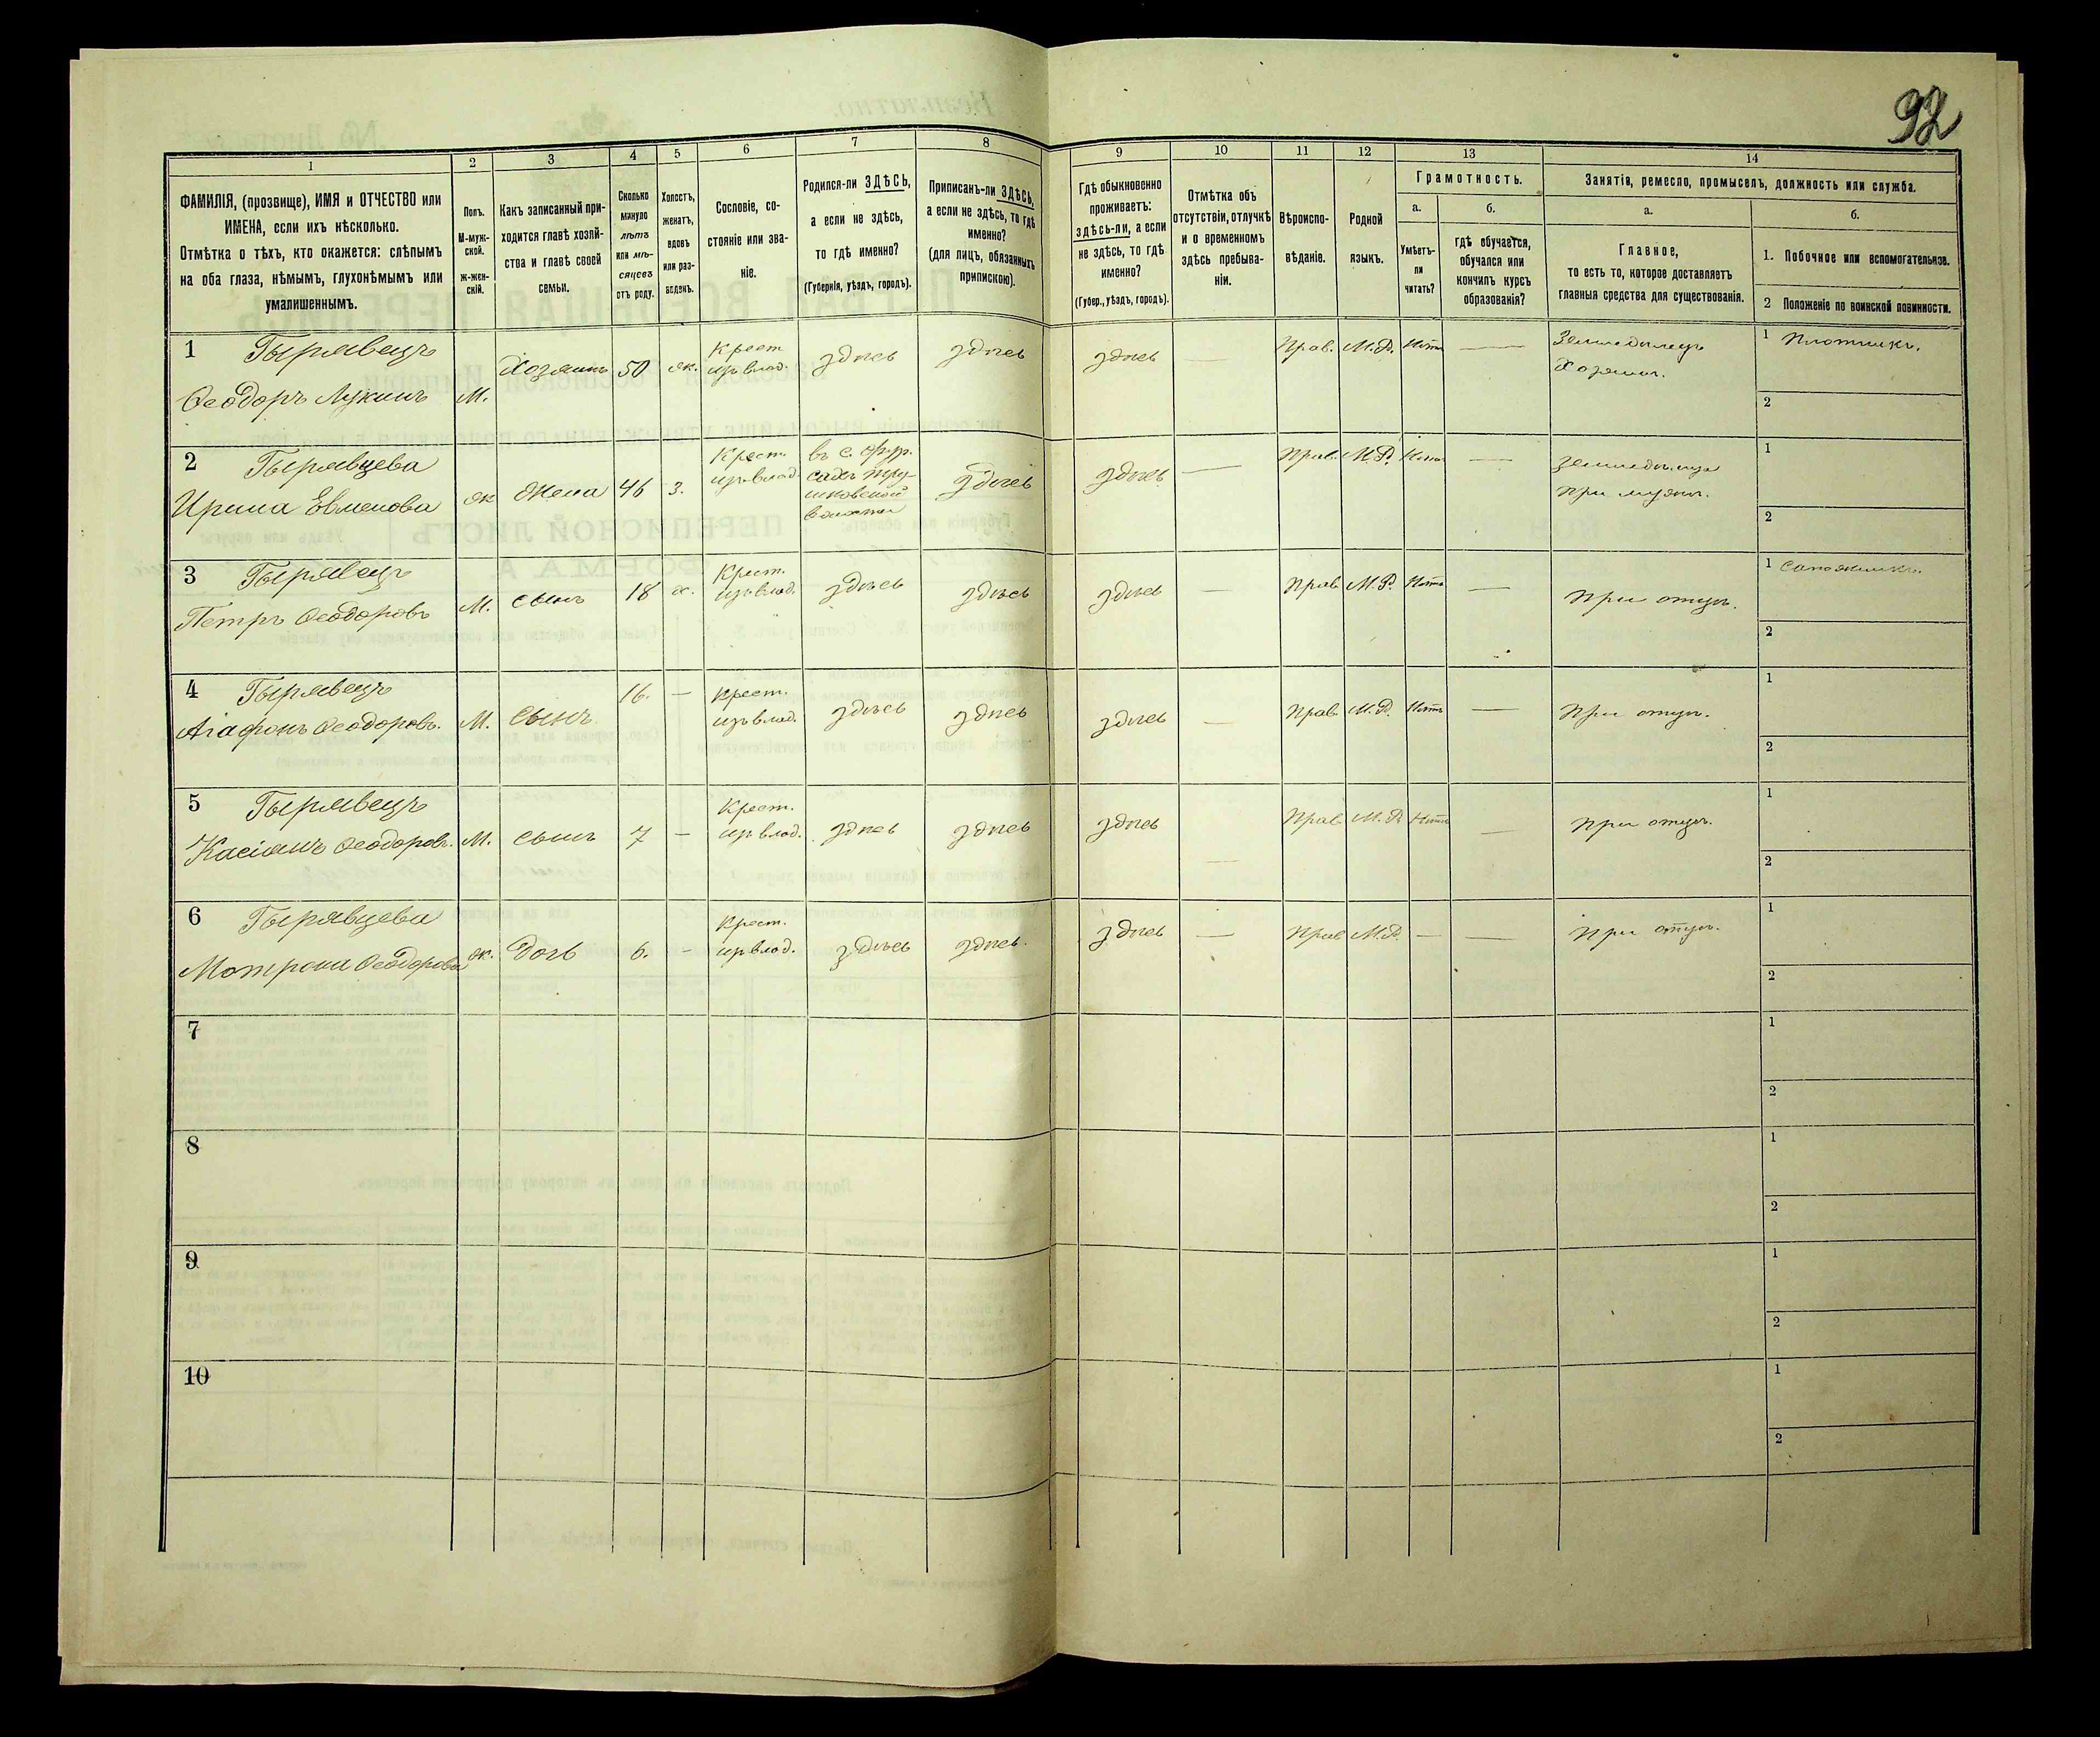 92
1
2
3
4
5
6
7
8
9
10
11
12
13
14
ФАМИЛІЯ, (прозвище), ИМЯ и ОТЧЕСТВО или
ИМЕНА, если ихъ нѣсколько.
Отмѣтка о тѣхъ, кто окажется: слѣпымъ
на оба глаза, нѣмымъ, глухонѣмымъ или
умалишеннымъ.
Полъ.
М-муж-
ской.
ж-жен-
скій.
Какъ записанный при-
ходится главѣ хозяй-
ства и главѣ своей
семьи.
Сколько
минуло
лѣтъ
или мѣ-
сяцевъ
отъ роду.
Холостъ,
женатъ,
вдовъ
или раз-
веденъ.
Сословіе, со-
стояніе или зва-
ніе.
Родился-ли ЗДѢСЬ,
а если не здѣсь,
то гдѣ именно?
(Губернія, уѣздъ, городъ).
Приписанъ-ли ЗДѢСЬ,
а если не здѣсь, то гдѣ
именно?
(для лицъ, обязанныхъ
припискою).
Гдѣ обыкновенно
проживаетъ:
здѣсь-ли, а если
не здѣсь, то гдѣ
именно?
(Губер., уѣздъ, городъ).
Отмѣтка объ
отсутствіи, отлучкѣ
и о временномъ
здѣсь пребыва-
ніи.
Вѣроиспо-
вѣданіе.
Родной
языкъ.
Грамотность.
а.
Умѣетъ-
ли
читать?
б.
гдѣ обучается,
обучался или
кончилъ курсъ
образованія?
Занятія, ремесло, промыселъ, должность или служба.
а.
Главное,
то есть то, которое доставляетъ
главныя средства для существованія.
б.
1. Побочное или вспомогательное.
2 Положеніе по воинской повинности.
1 Гырявецъ
Ѳеодоръ Лукинъ
М.
Хозяинъ
50
ж.
Крест.
изъ влад.
здѣсь
здѣсь
здѣсь
—
Прав.
М.Р.
Нѣтъ
—
Земледѣлецъ
Хозяинъ.
1 Плотникъ.
2
2 Гырявцева
Ирина Евменова
ж
Жена
46
з.
Крест.
изъ влад
здѣсь
здѣсь
—
Прав.
М.Р.
Нѣтъ
—
при мужѣ.
1
2
3 Гырявецъ
Петръ Ѳеодоровъ
М.
сынъ
18
х.
Крест.
изъ влад.
здѣсь
здѣсь
здѣсь
—
Прав
М.Р.
Нѣтъ
—
При отцѣ.
1 Сапожникъ.
2
4 Гырявецъ
Агафонъ Ѳеодоровъ.
М.
Сынъ
16.
—
Крест.
изъ влад.
здѣсь
здѣсь
здѣсь
—
Прав
М.Р.
Нѣтъ
—
При отцѣ.
1
2
5 Гырявецъ
Касіанъ Ѳеодоровъ.
М.
сынъ
7
—
Крест.
изъ влад.
здѣсь
здѣсь
здѣсь
—
Прав
М.Р.
Нѣтъ
—
при отцѣ.
1
2
6 Гырявцева
Мотрона Ѳеодорова
ж.
Дочь
6.
-
Крест.
изъ влад.
здѣсь
здѣсь.
здѣсь
—
Прав
М.Р.
—
—
При отцѣ.
1
2
7
1
2
8
1
2
9
1
2
10
1
2